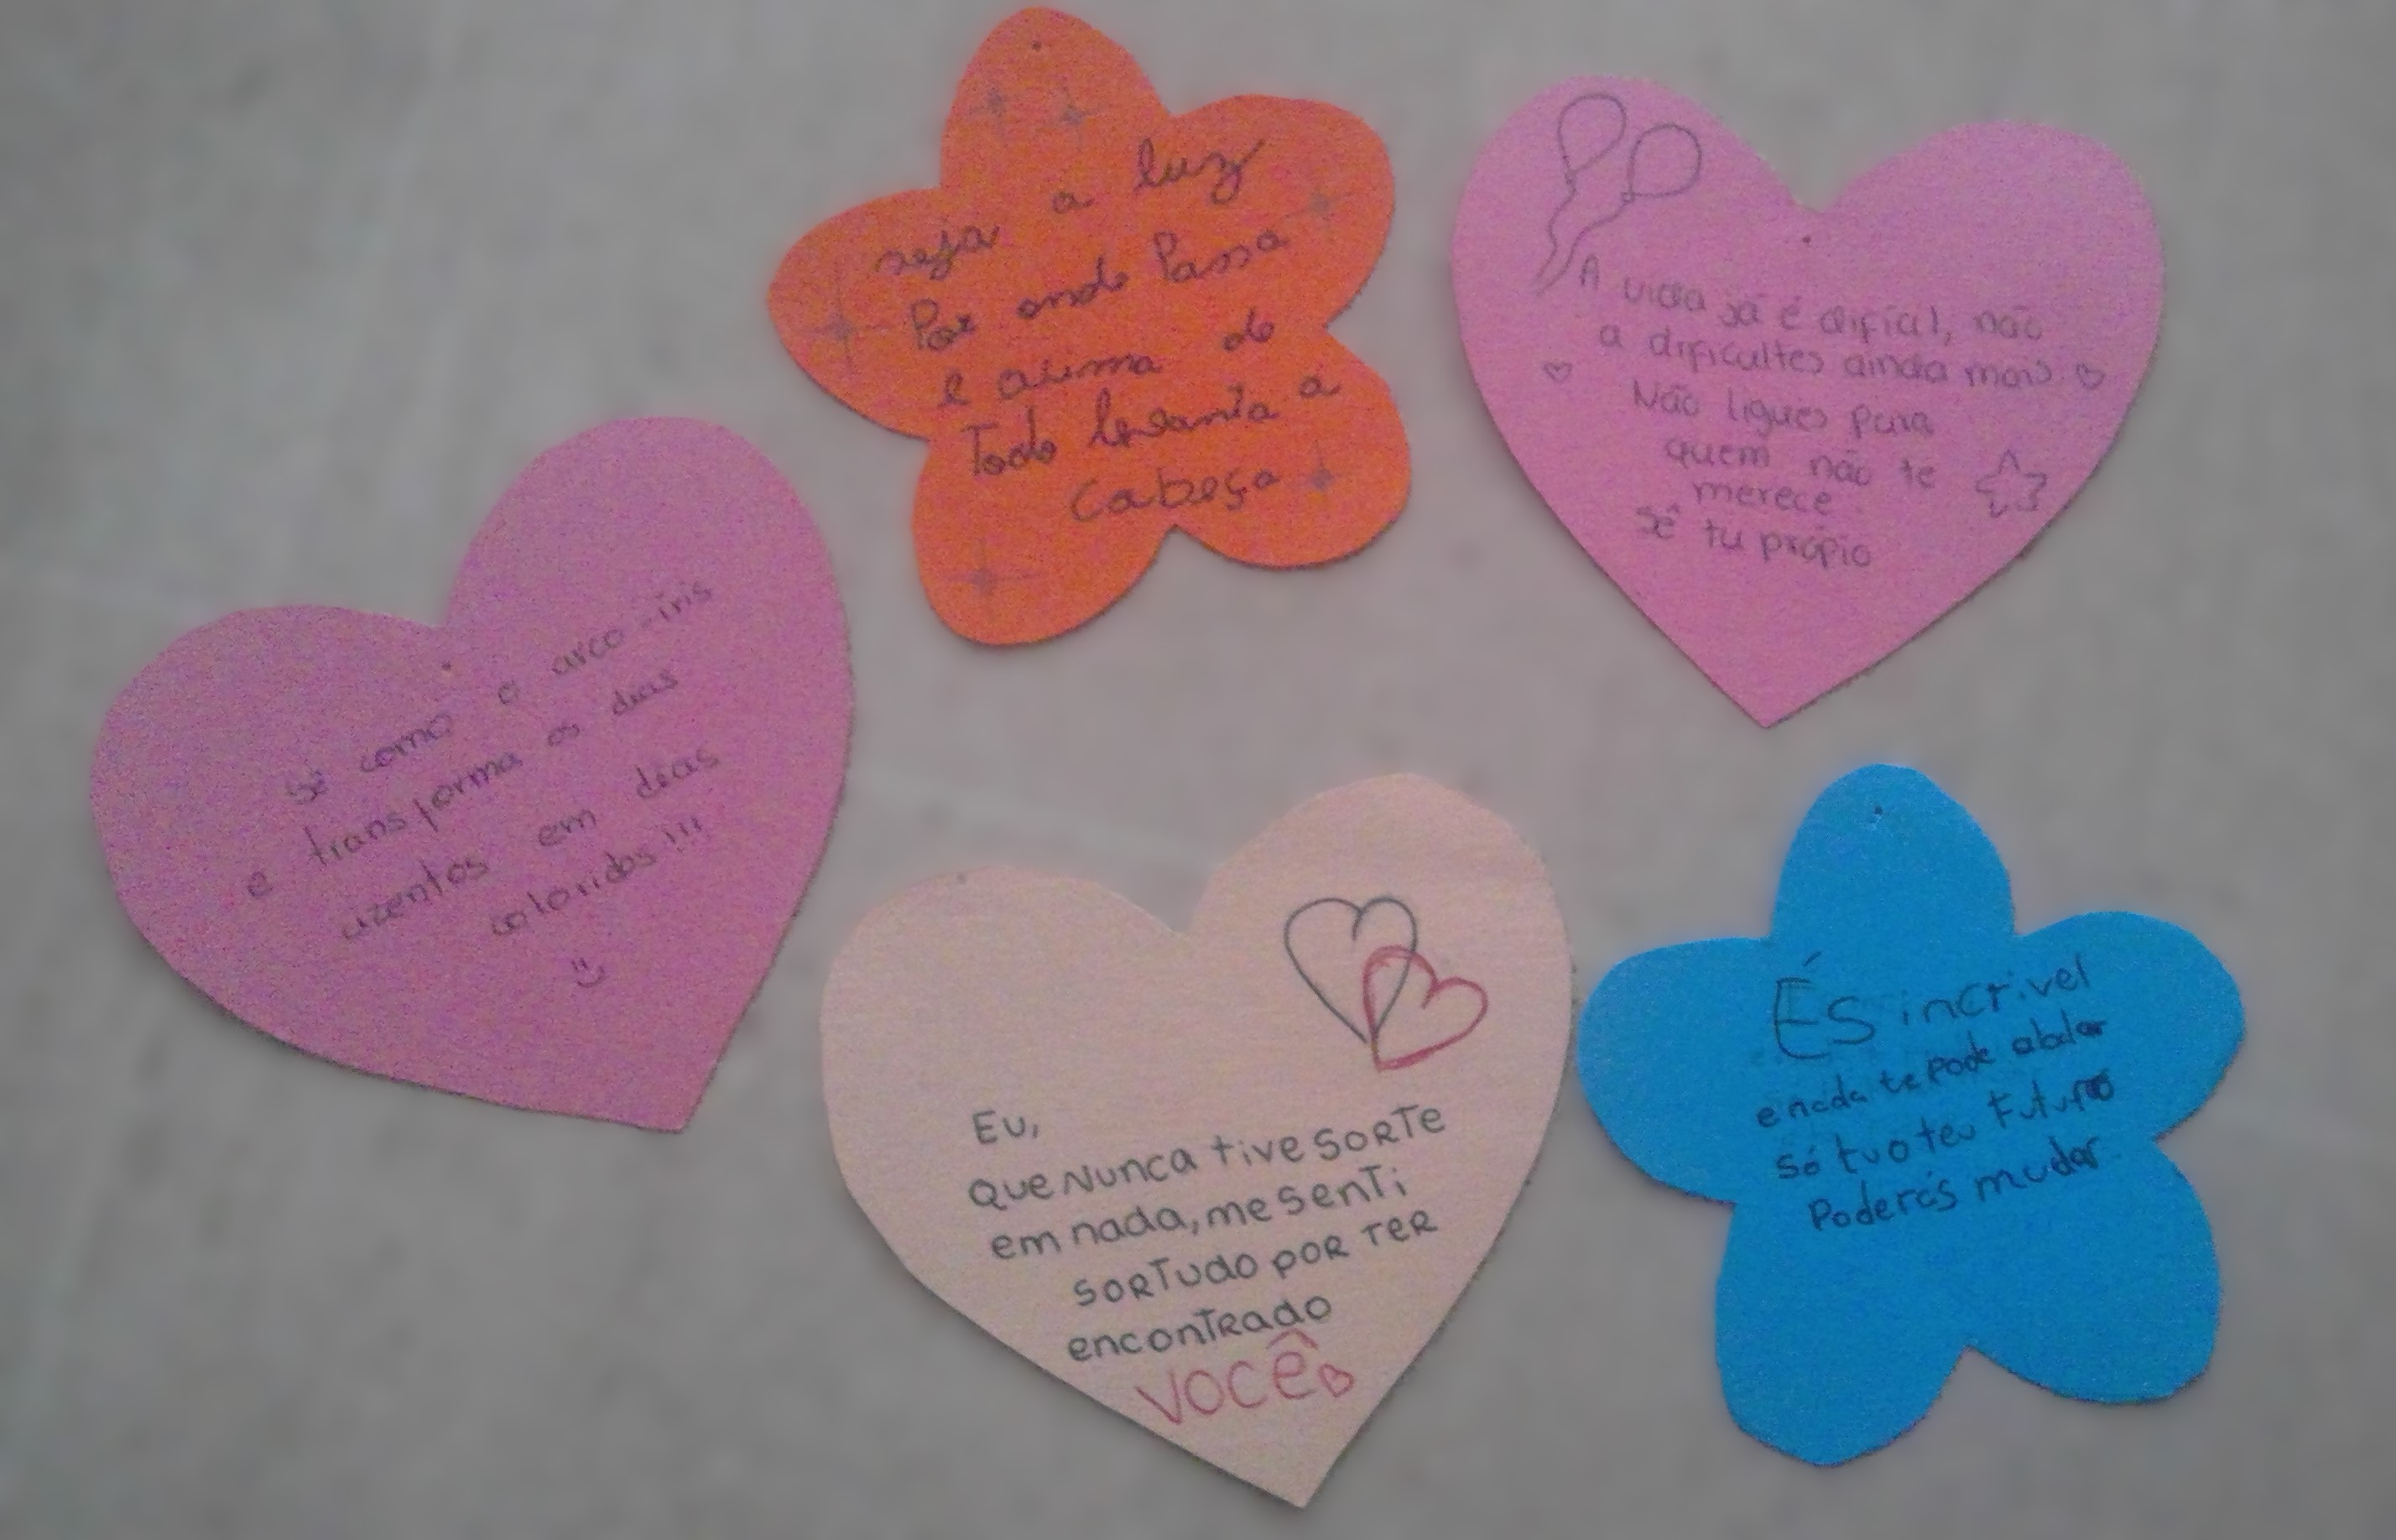 seja a luz
Por onde Passa
e acima de
Todo levanta a
cabeça
A vida já é difícil, não
a dificultes ainda mais
Não ligues para
quem não te
merece
Sê tu própio
Sê como o arco-íris
e transforma os dias
cizentos em dias
coloridos!!!
Eu,
que nunca tive sorte
em nada, me senti
sortudo por ter
encontrado
você
És incrivel
e nada te pode abalar
só tu o teu Futuro
Poderás mudar.